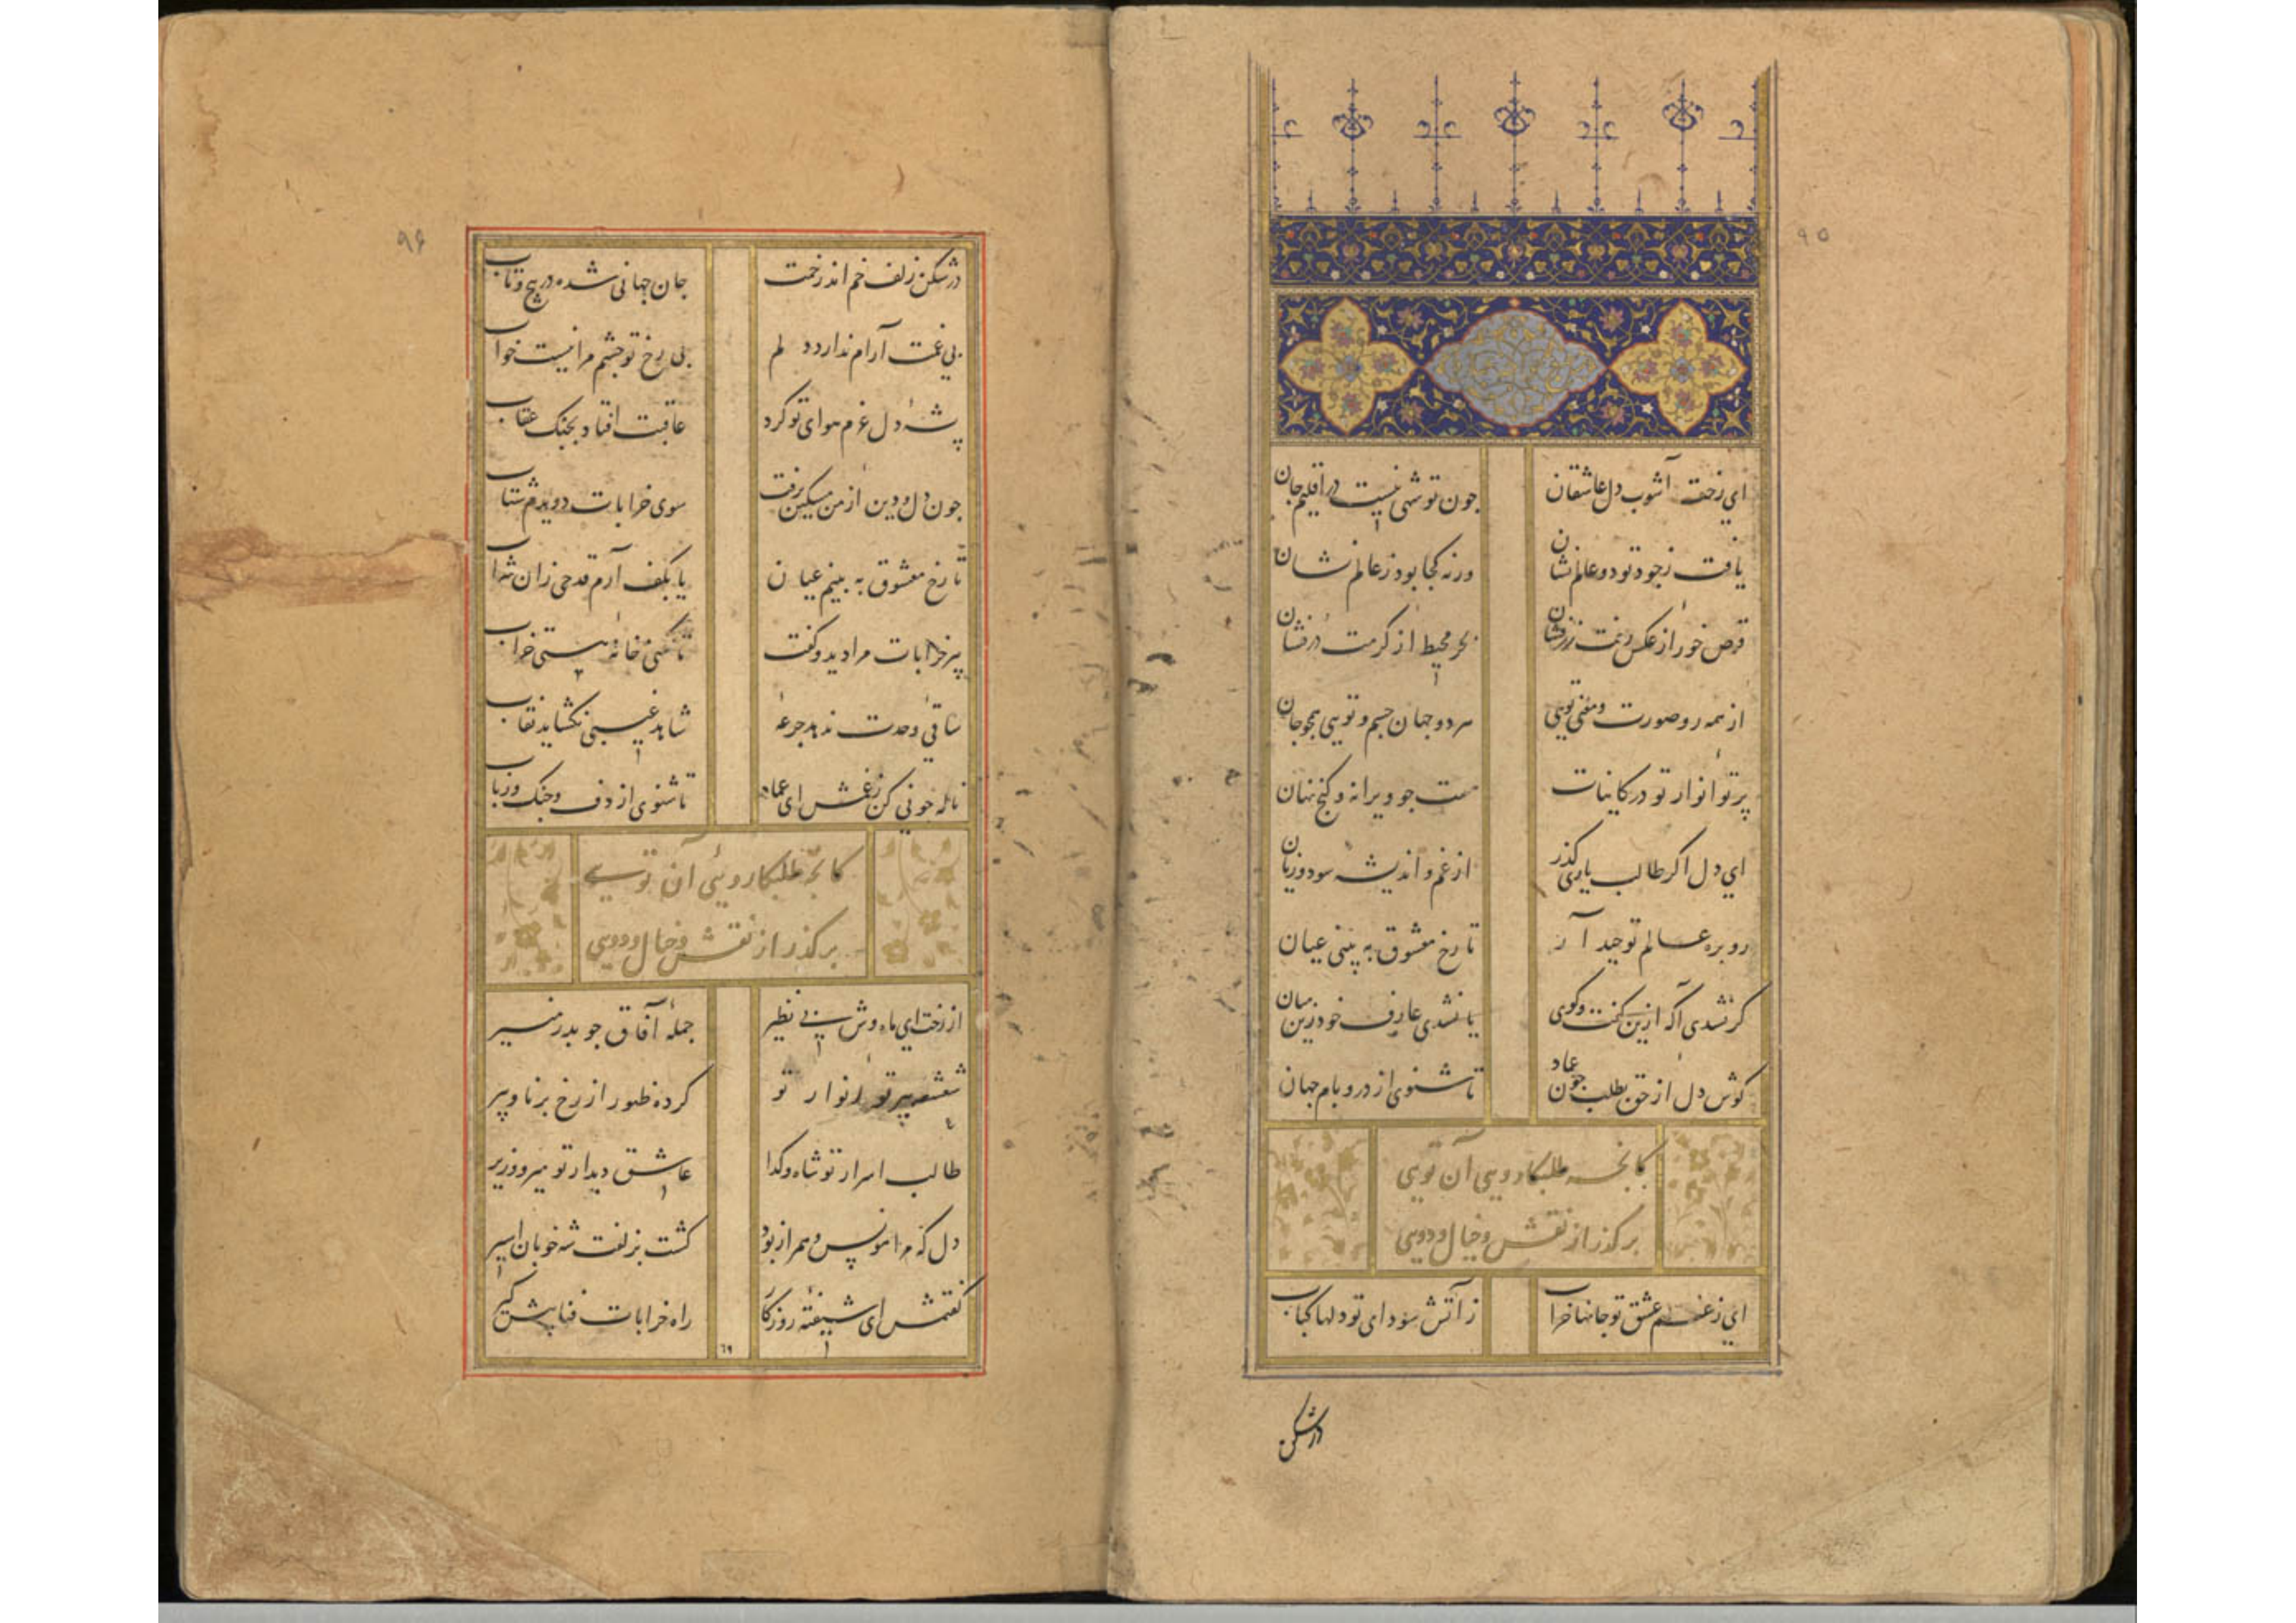 ۹۵
ای رخت آشوب دل عاشقان جون تو شهی نیست در اقلیم جان
یافت ز جود تو دو عالم نشان ورنه کجا بود ز عالم نشان
قرص خور از عکس رخت زرفشان بحر محیط از کرمت درفشان
از همه رو صورت و معنی تویی هر دو جهان جسم و تویی همجو جان
پرتو انوار تو در کاینات هست جو ویرانه و کنج نهان
ای دل اکر طالب یاری کذر از غم و اندیشه سود و زیان
رو بره عالم توحید آر تا رخ معشوق به بینی عیان
کر نشدی آکه ازین کفت وکوی یا نشدی عارف خود زین میان
کوش دل از حق بطلب جون عماد تا شنوی از در و بام جهان
کانجه طلبکار ویی آن تویی
برکذر از نقش و خیال و دویی
ای ز غم عشق تو جانها خراب ز آتش سودای تو دلها کباب
در شکن
۹۶
در شکن زلف خم اندر خمت جان جهانی شده در پیج و تاب
بی غمت آرام ندارد دلم بی رخ تو جشم مرا نیست خواب
پشه دل عزم هوای تو کرد عاقبت افتاد بجنک عقاب
جون دل و دین از من مسکین برفت سوی خرابات دویدم شتاب
تا رخ معشوق به بینم عیان یا بکف آرم قدحی زان شراب
پیر خرابات مرا دید و کفت تا نکنی خانه هستی خراب
ساقی وحدت ندهد جرعه شاهد غیبی نکشاید نقاب
ناله جو نی کن ز غمش ای عماد تا شنوی از دف و جنک و رباب
کانجه طلبکار ویی آن تویی
برکذر از نقش و خیال و دویی
از رخت ای ماه وش بی نظیر جمله آفاق جو بدر منیر
شعشعه پرتو انوار تو کرده ظهور از رخ برنا و پیر
طالب اسرار تو شاه وکدا عاشق دیدار تو میر و وزیر
دل که مرا مونس و همراز بود کشت بزلفت شه خوبان اسیر
کفتمش ای شیفته روزکار راه خرابات فنا پیش کیر
٦٩